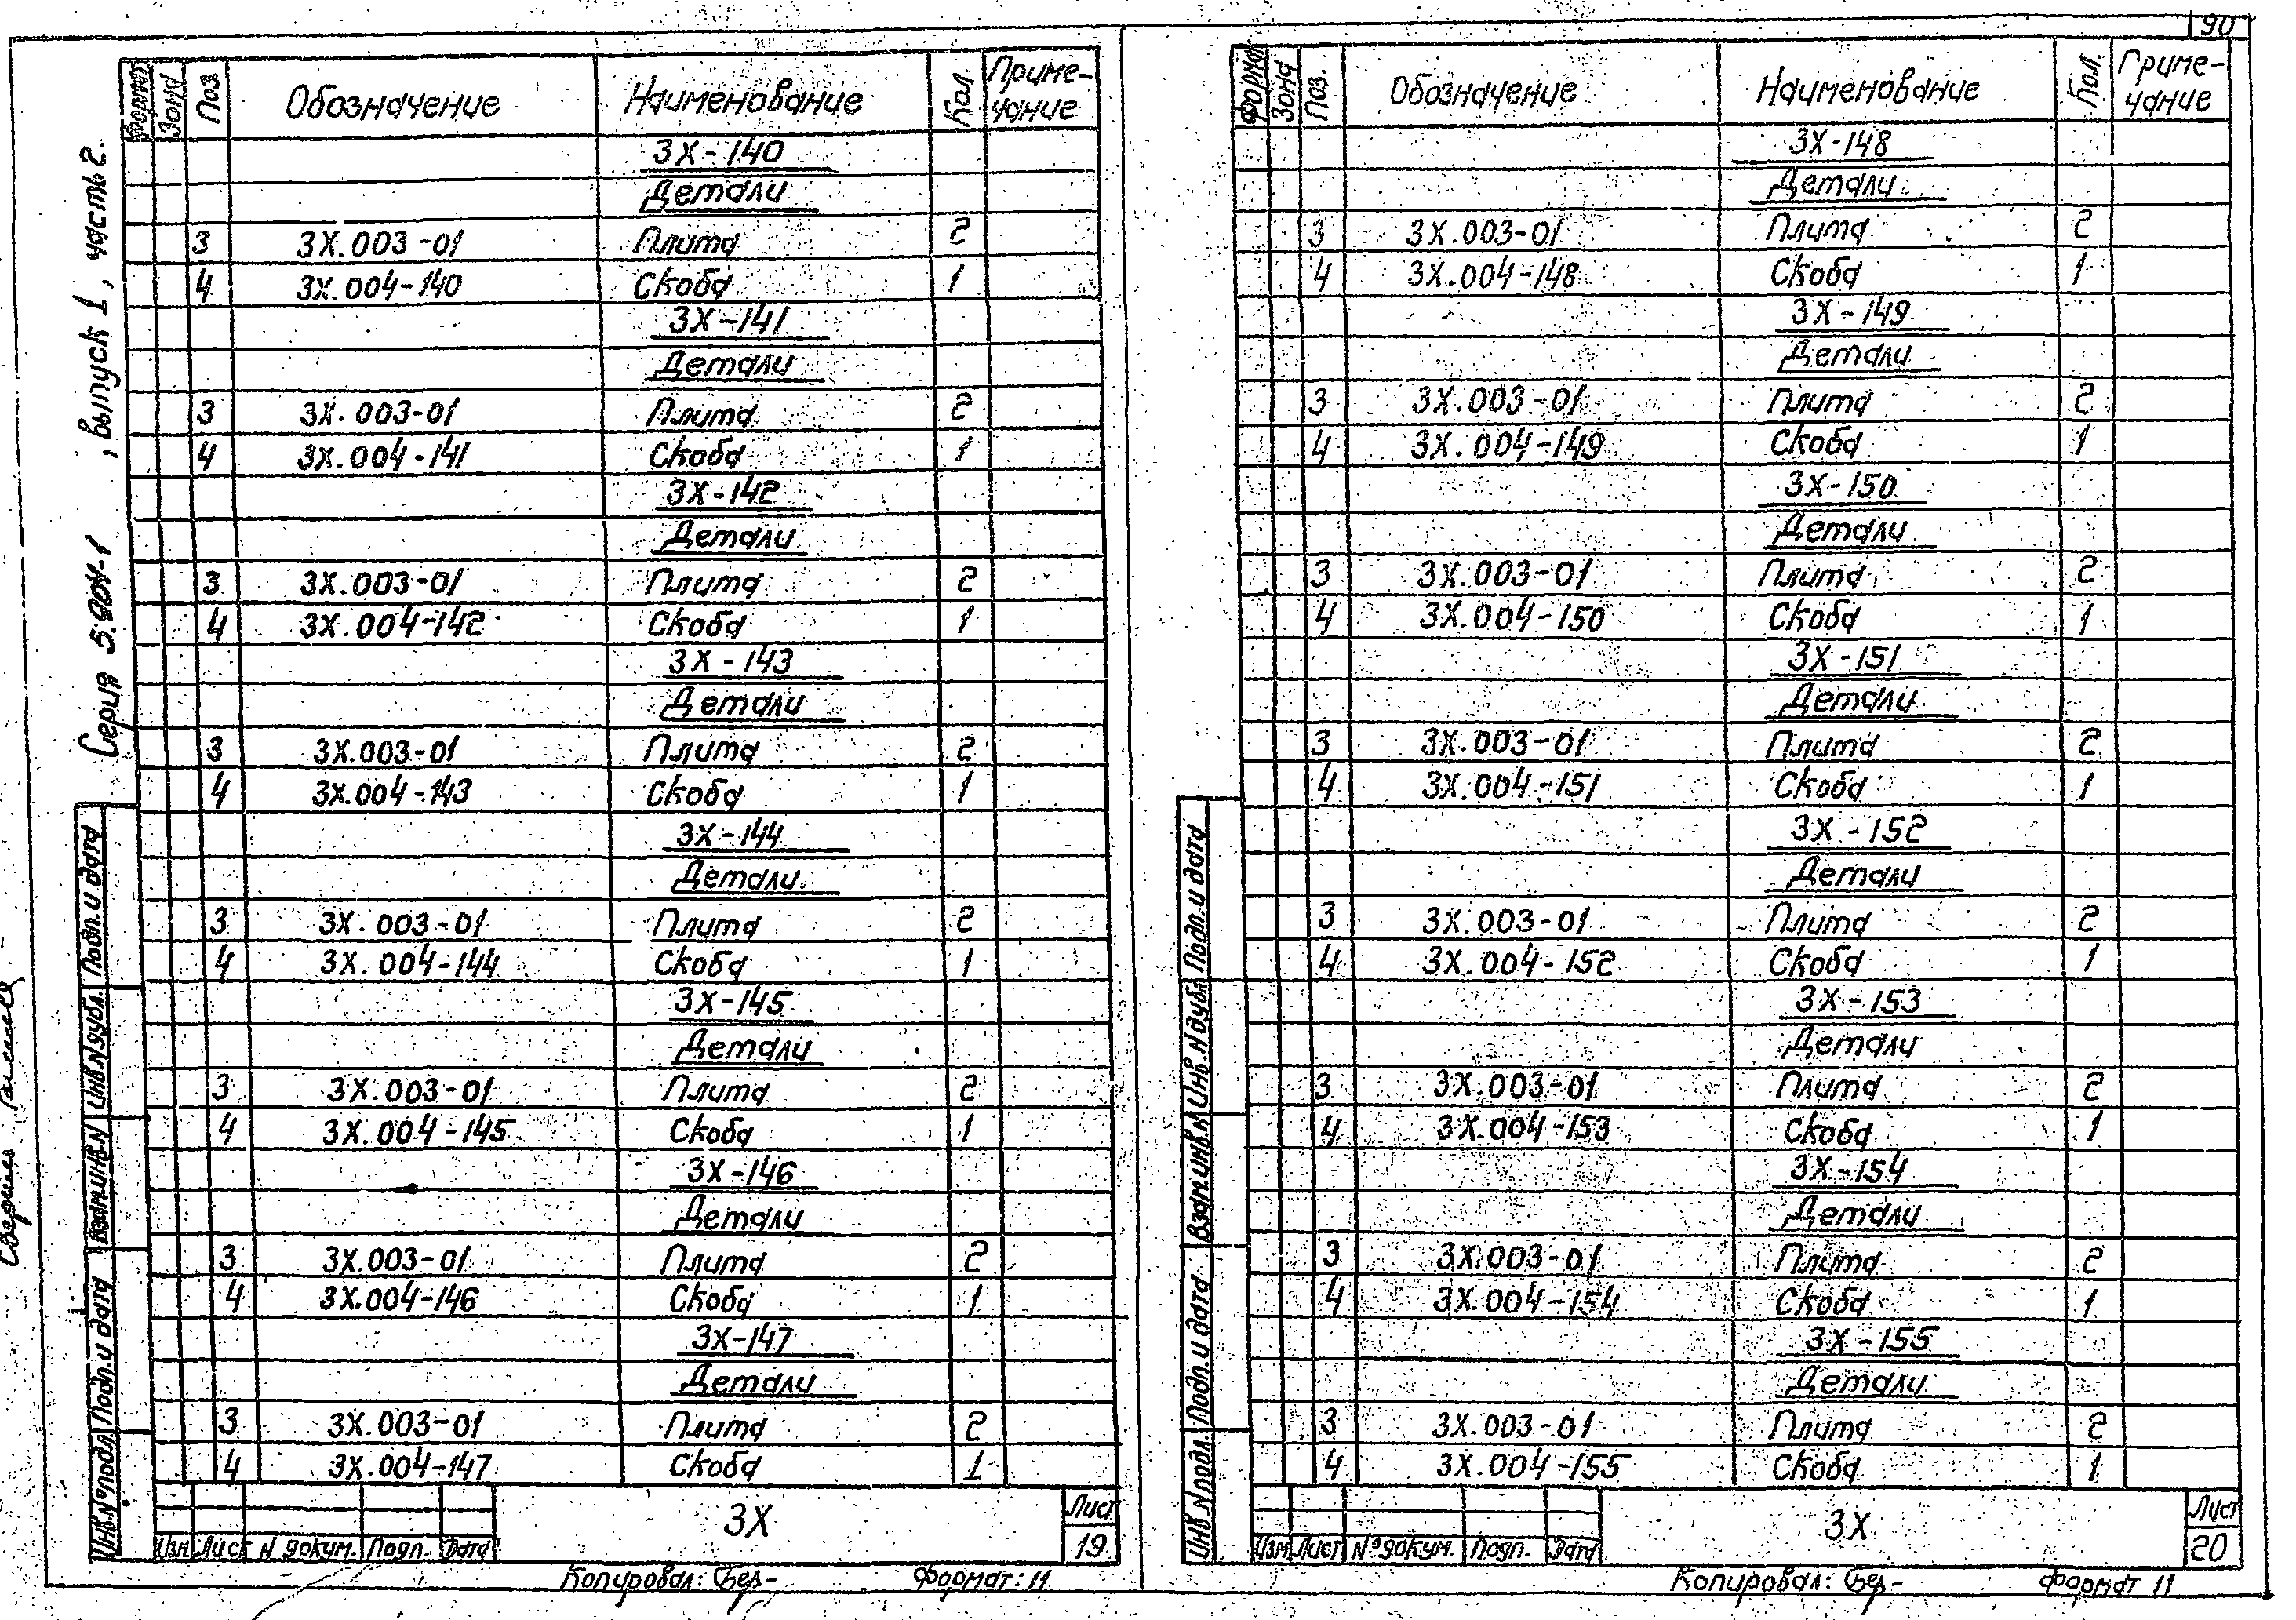 90
Серия 5.904-1 , выпуск 1, часть 2.
Формат Зона Поз. Обозначение Наименование Кол. Приме-
чание
3Х-140
Детали
3 3Х.003-01 Плита 2
4 3Х.004-140 Скоба 1
3Х-141
Детали
3 3Х.003-01 Плита 2
4 3Х.004-141 Скоба 1
3Х-142
Детали
3 3Х.003-01 Плита 2
4 3Х.004-142 Скоба 1
3Х-143
Детали
3 3Х.003-01 Плита 2
4 3Х.004-143 Скоба 1
3Х-144
Детали
3 3Х.003-01 Плита 2
4 3Х.004-144 Скоба 1
3Х-145
Детали
3 3Х.003-01 Плита 2
4 3Х.004-145 Скоба 1
3Х-146
Детали
3 3Х.003-01 Плита 2
4 3Х.004-146 Скоба 1
3Х-147
Детали
3 3Х.003-01 Плита 2
4 3Х.004-147 Скоба 1
Инв.№подл. Подп. и дата Взам.инв.N Инв.Nдубл. Подп. и дата
Изм Лист N докум. Подп. Дата
3Х
Лист
19
Копировал: Бел-
Формат: 11
Формат Зона Поз. Обозначение Наименование Кол. Приме-
чание
3Х-148
Детали
3 3Х.003-01 Плита 2
4 3Х.004-148 Скоба 1
3Х-149
Детали
3 3Х.003-01 Плита 2
4 3Х.004-149 Скоба 1
3Х-150
Детали
3 3Х.003-01 Плита 2
4 3Х.004-150 Скоба 1
3Х-151
Детали
3 3Х.003-01 Плита 2
4 3Х.004-151 Скоба 1
3Х-152
Детали
3 3Х.003-01 Плита 2
4 3Х.004-152 Скоба 1
3Х-153
Детали
3 3Х.003-01 Плита 2
4 3Х.004-153 Скоба 1
3Х-154
Детали
3 3Х.003-01 Плита 2
4 3Х.004-154 Скоба 1
3Х-155
Детали
3 3Х.003-01 Плита 2
4 3Х.004-155 Скоба 1
Инв.Nподл. Подп. и дата Взам.инв.N Инв.Nдубл. Подп. и дата
Изм Лист №докум. Подп. Дата
3Х
Лист
20
Копировал: Бел-
Формат 11